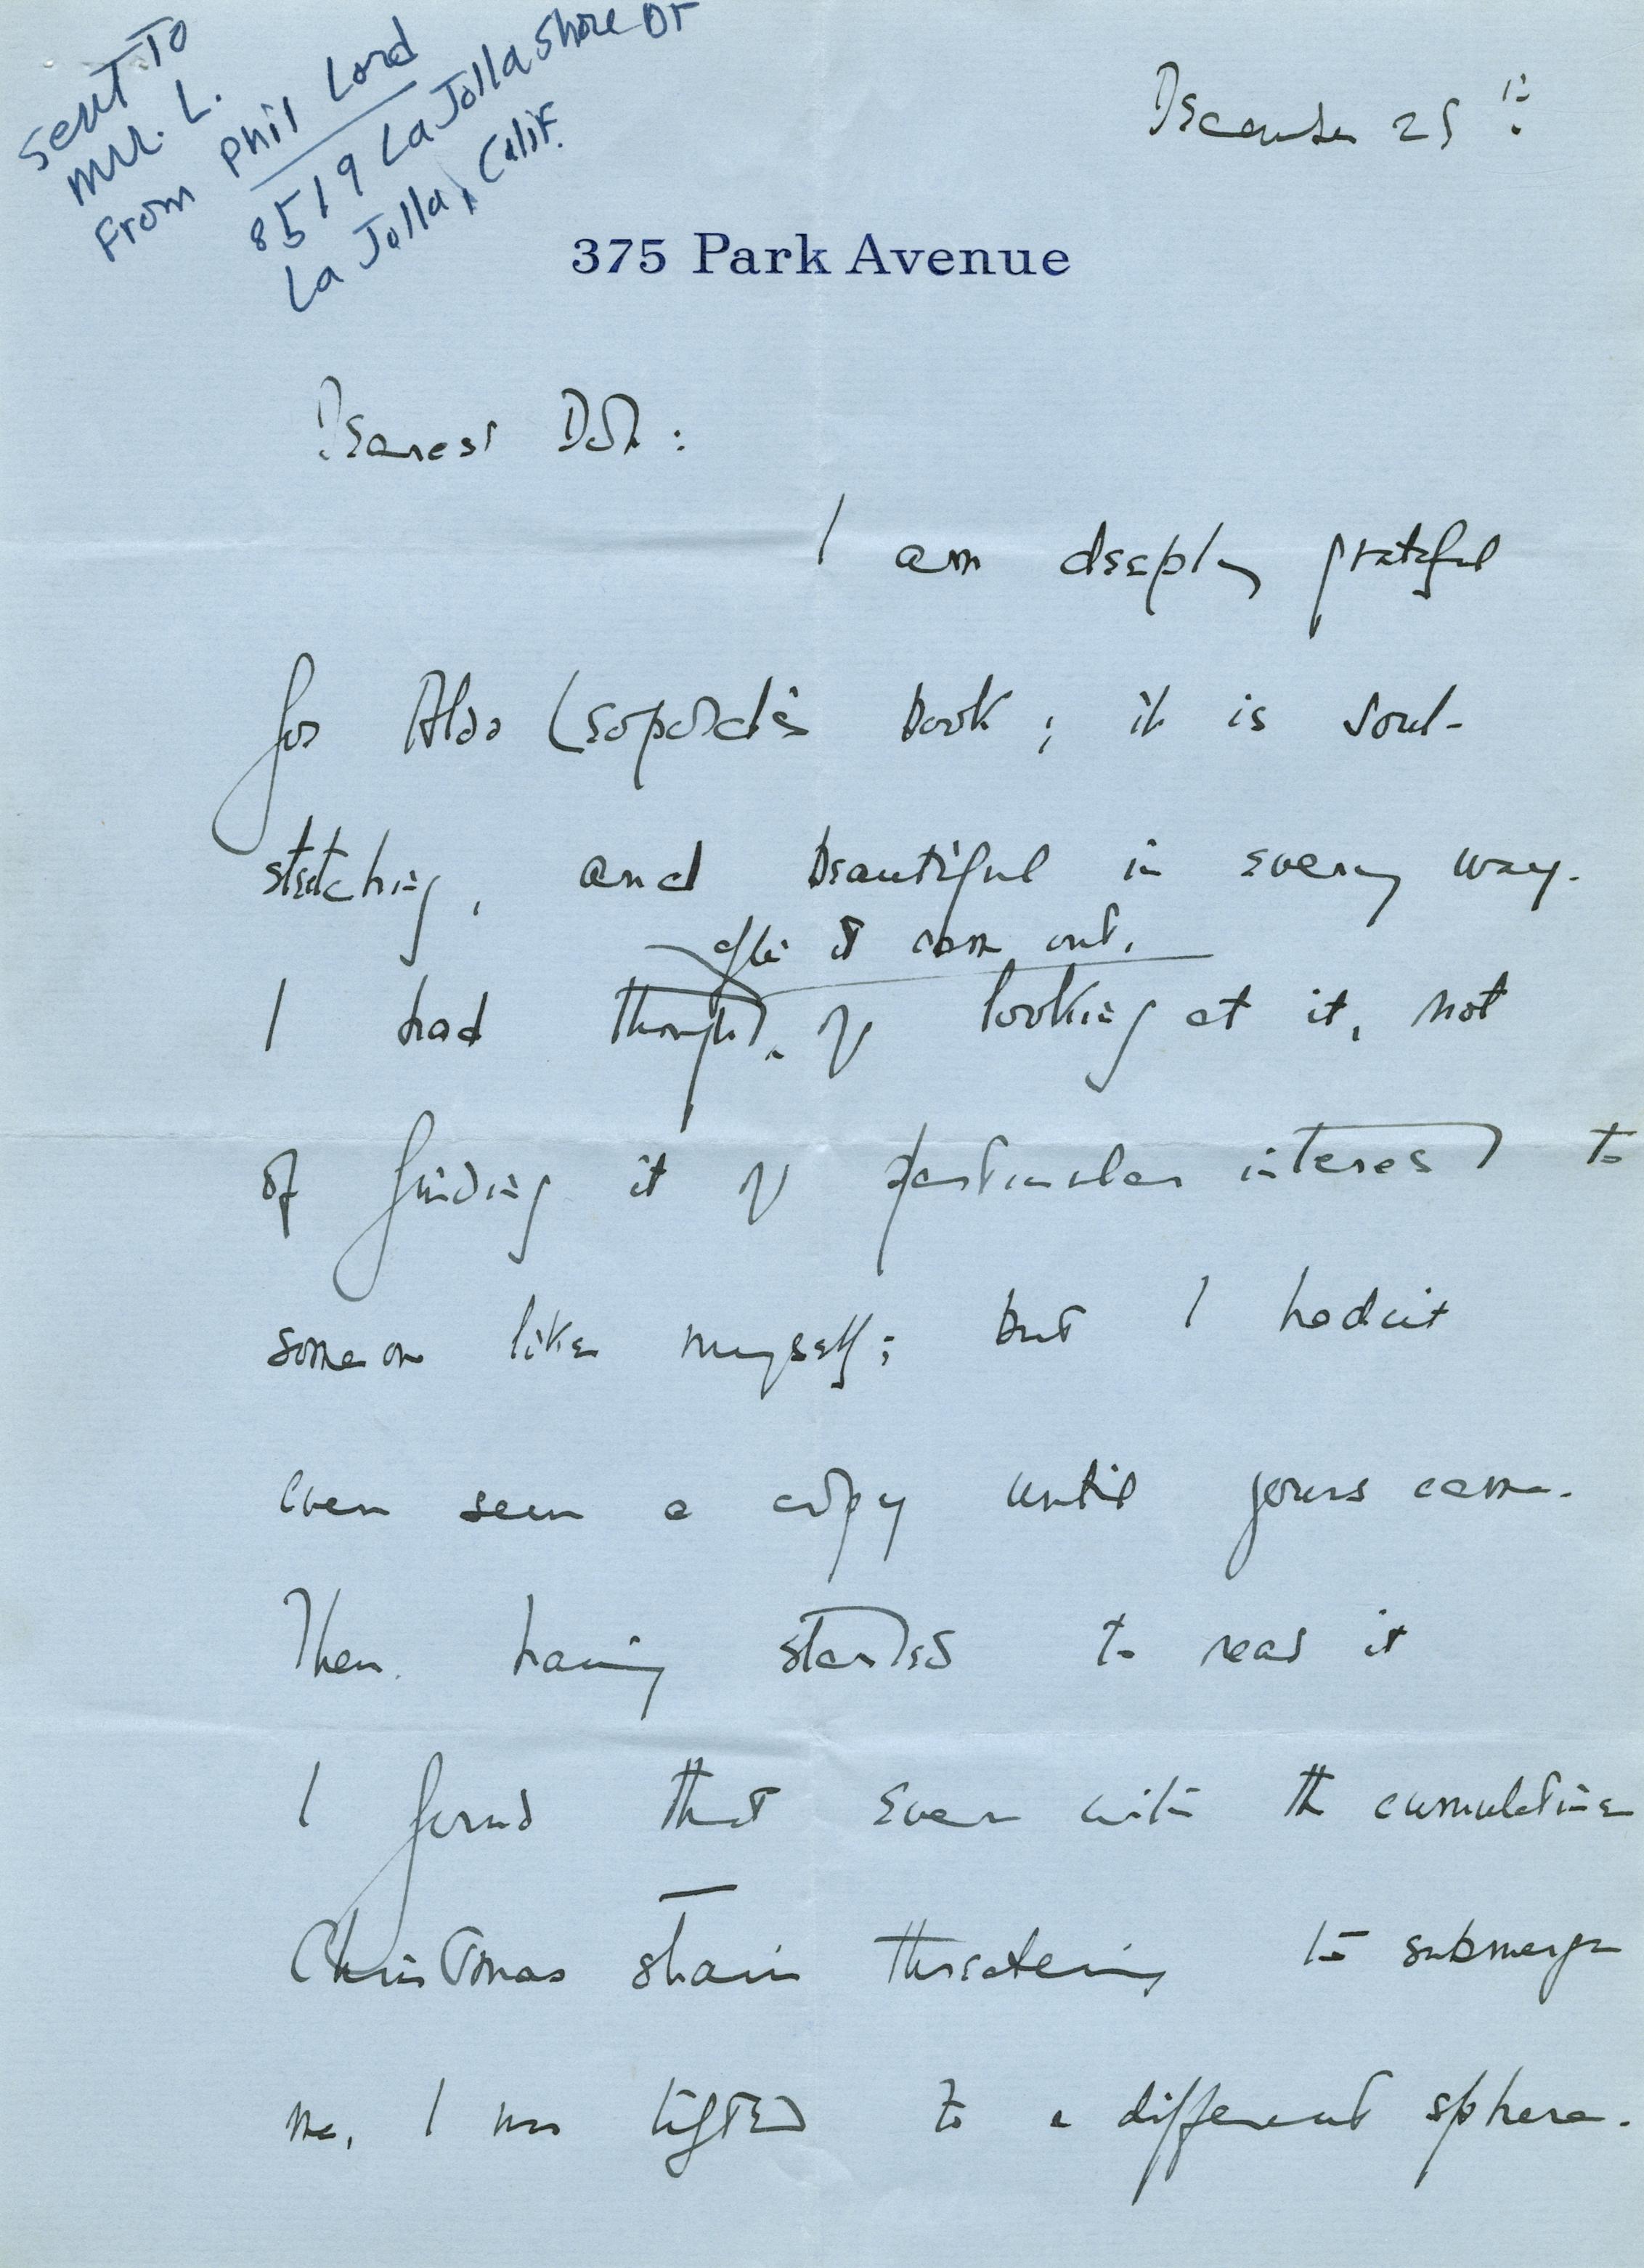 Sent To
Mr. L.
From Phil Lord
8519 La Jolla Shore Dr
La Jolla, Calif.
December 25th
375 Park Avenue
Dearest
I am deeply grateful
for Aldo Leopold's book; it is soul-
stretching, and beautiful in every way.
after it came out,
I had thought, of looking at it, not
of finding it of particular interest to
someone like myself; but I hadn't
even seen a copy until yours came.
Then, having started to read it
I found that even with the cumulative
Christmas strain threatening to submerge
me, I was lifted to a different sphere.